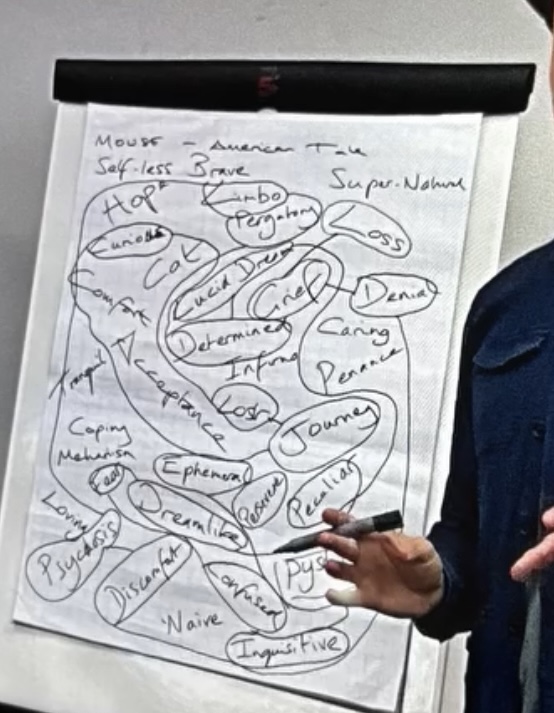 Mouse - American Tale
Self-less Brave
Super-Natural
Hope
Limbo
Pergatory
Loss
Curious
Cat
Lucid Dream
Comfort
Grief
Denial
Determined
Caring
Inferno
Penance
Acceptance
Tranquil
Lost
Journey
Coping
Mehanism
Ephemeral
Fear
Peculiar
Dreamlike
Loving
Psychosis
Discomfort
Confused
Dys
Naive
Inquisitive